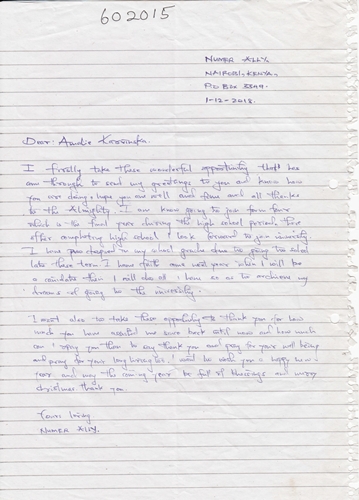 602015
NUMER ALLY.
NAIROBI, KENYA,
P.O BOX 3349.
1-12-2018.
Dear: Auntie
I firstly take these wonderful opportunity that has
come through to send my greetings to you and know how
you are doing, hope you are well and fine and all thanks
to the Almighty. I am know going to join form four
which is the final year during the high school period. Then
after completing high school I look forward to join university
I have in my school grade due to going to school
late these term I have next year when I will be
a candidate then I will do all I have so as to archieve my
dreams of going to the university.
I must also to take these opportunity to thank you for how
much you have assisted me since back until now and how much
can I repay you than to say thank you and pray for your well being
and pray for your long and he wish you a happy new
year and may the coming year be full of blessings and merry
christmas thank you.
Yours loving
NUMER ALLY.